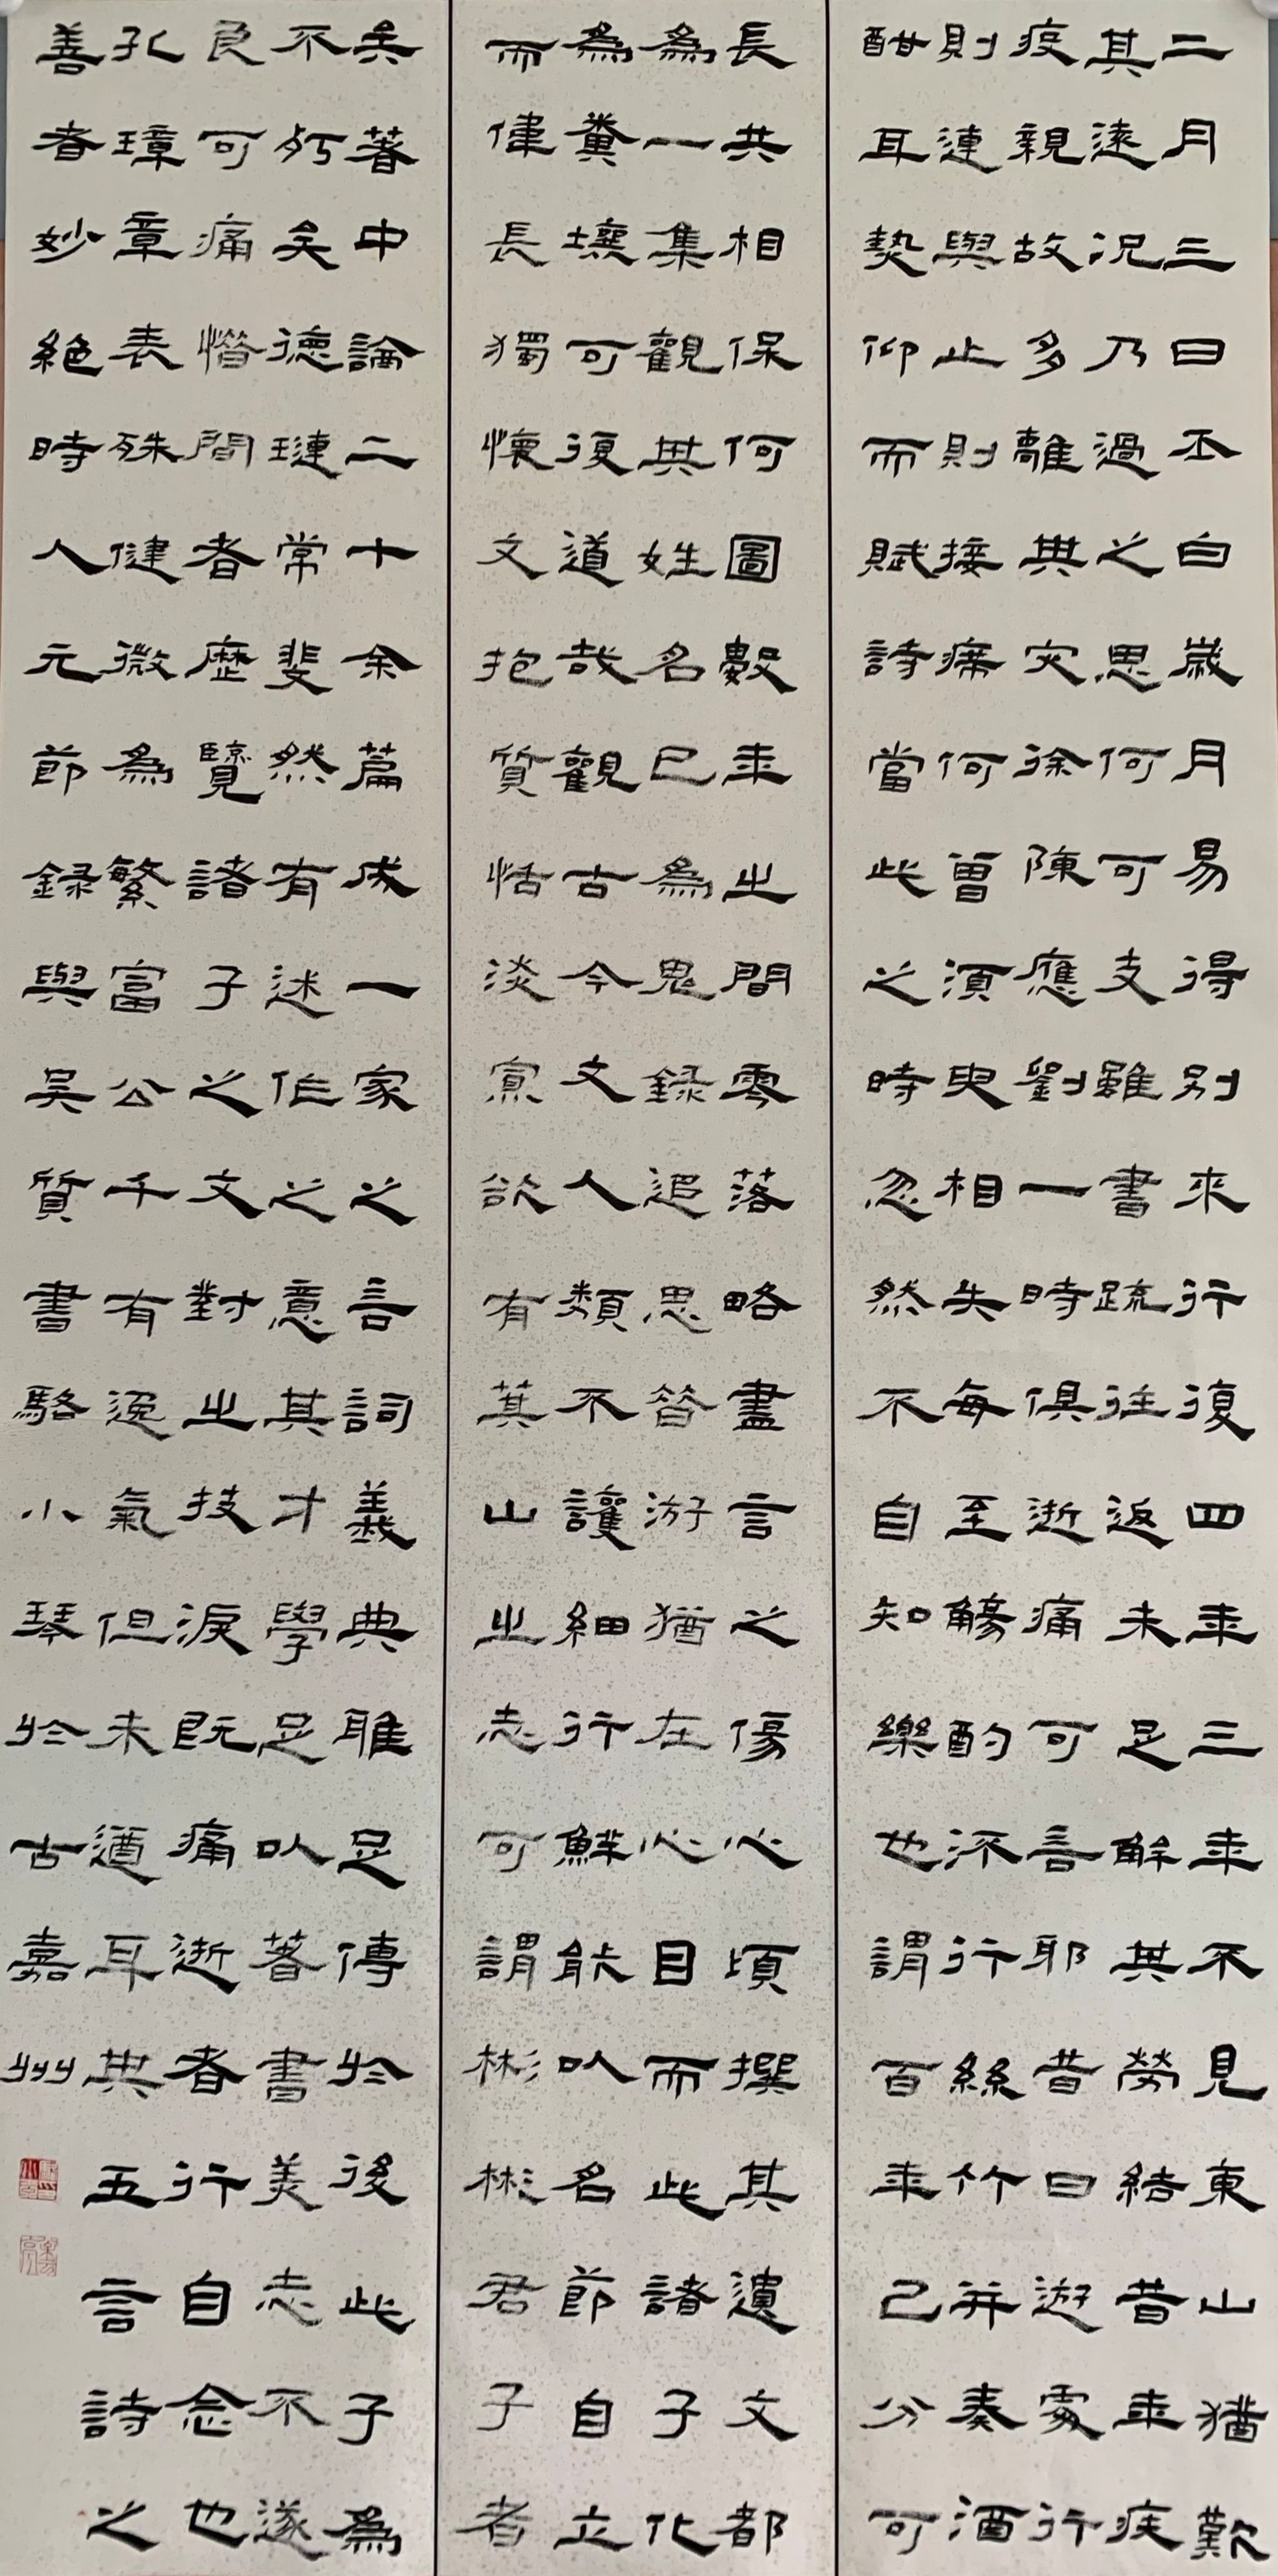 二月三日丕白歲月易得別來行復四年三年不見東山猶歎
其遠況乃過之思何可支雖書疏往返未足解其勞結昔年疾
疫親故多離其灾徐陳應劉一時俱逝痛可言耶昔日遊處行
則連與止則接席何曾須臾相失每至觴酌流行絲竹并奏酒
酣耳熱仰而賦詩當此之時忽然不自知樂也謂百年己分可
長共相保何圖數年之間零落略盡言之傷心頃撰其遺文都
為一集觀其姓名已為鬼錄追思昔游猶在心目而此諸子化
為糞壤可復道哉觀古今文人類不護細行鮮能以名節自立
而偉長獨懷文抱質恬淡寡欲有箕山之志可謂彬彬君子者
矣著中論二十余篇成一家之言詞義典雅足傳於後此子為
不朽矣德璉常斐然有述作之意其才學足以著書美志不遂
良可痛惜間者歷覽諸子之文對之技淚既痛逝者行自念也
孔璋章表殊健微為繁富公千有逸氣但未遒耳其五言詩之
善者妙絕時人元節錄與吳質書駱小琴於古嘉州